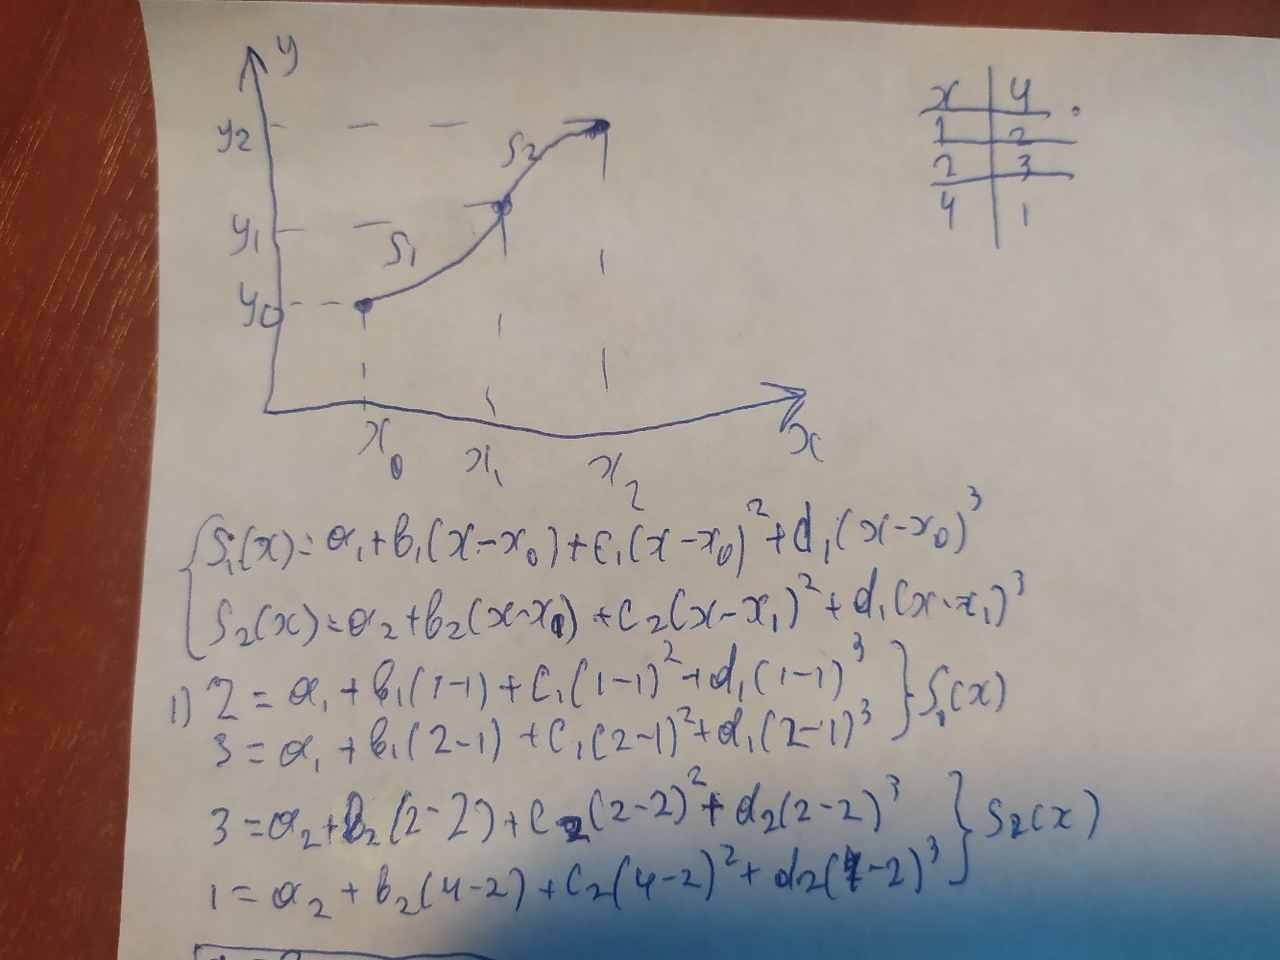 y
y₂
S₂
y₁
S₁
y₀
x₀ x₁ x₂ x
x | y
1 | 2
2 | 3
4 | 1
S₁(x)=a₁+b₁(x-x₀)+c₁(x-x₀)²+d₁(x-x₀)³
S₂(x)=a₂+b₂(x-x₁)+c₂(x-x₁)²+d₁(x-x₁)³
1) 2=a₁+b₁(1-1)+c₁(1-1)²+d₁(1-1)³ } S₁(x)
3=a₁+b₁(2-1)+c₁(2-1)²+d₁(2-1)³
3=a₂+b₂(2-2)+c₂(2-2)²+d₂(2-2)³ } S₂(x)
1=a₂+b₂(4-2)+c₂(4-2)²+d₂(4-2)³